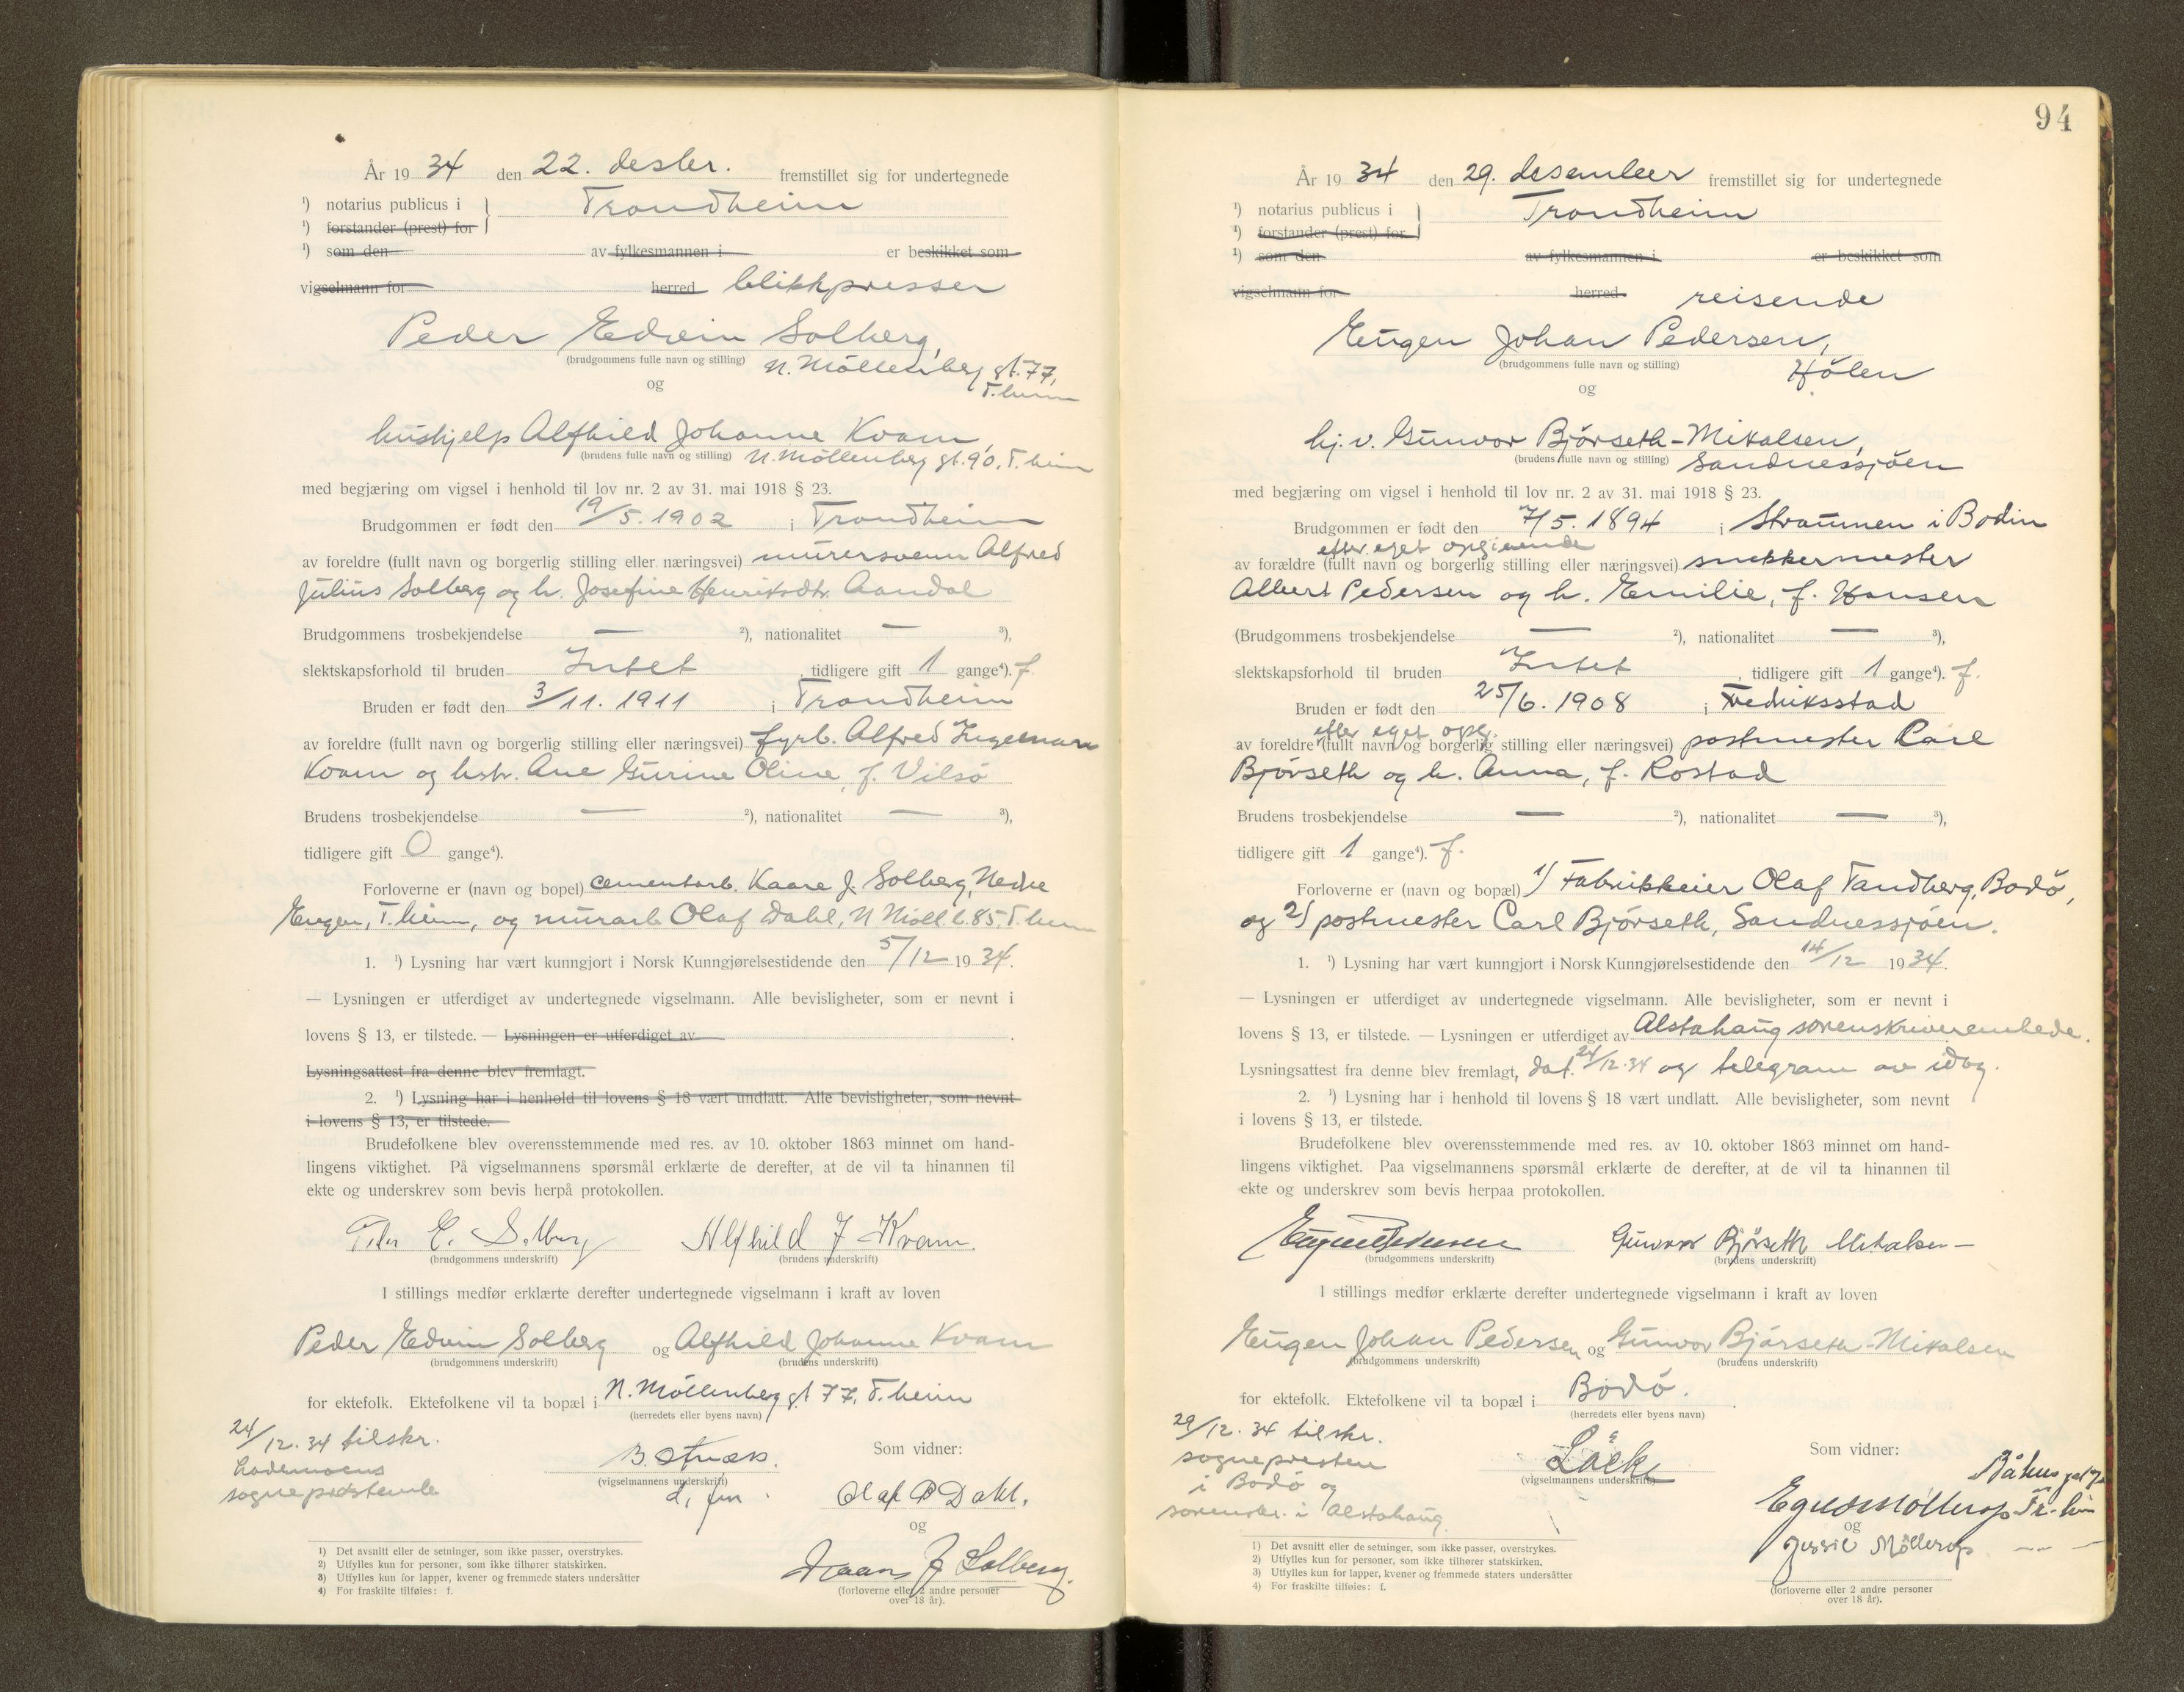 År 1934 den 22. desbr. fremstillet sig for undertegnede
¹) notarius publicus i Trondheim
¹) forstander (prest) for
¹) som den av fylkesmannen i er beskikket som
vigselmann for herred blikkpresser
Peder Edvin Solberg,
(brudgommens fulle navn og stilling) N. Möllenberg gt. 77,
T.heim
og
hushjelp Alfhild Johanne Kvam,
(brudens fulle navn og stilling) N. Möllenberg gt. 90, T.heim
med begjæring om vigsel i henhold til lov nr. 2 av 31. mai 1918 § 23.
Brudgommen er født den 19/5. 1902 i Trondheim
av foreldre (fullt navn og borgerlig stilling eller næringsvei) murersvenn Alfred
Julius Solberg og h. Josefine Henriksdtr. Aandal
Brudgommens trosbekjendelse — ²), nationalitet — ³),
slektskapsforhold til bruden Intet, tidligere gift 1 gange⁴). f.
Bruden er født den 3/11. 1911 i Trondheim
av foreldre (fullt navn og borgerlig stilling eller næringsvei) fyrb. Alfred Ingemar
Kvam og hstr. Ane Gurine Oline, f. Vilsö
Brudens trosbekjendelse — ²), nationalitet — ³),
tidligere gift 0 gange⁴).
Forloverne er (navn og bopel) cementarb. Kaare J. Solberg, Nedre
Engen, T.heim, og murarb. Olaf Dahl, N Möll.b. 85, T.heim
1. ¹) Lysning har vært kunngjort i Norsk Kunngjørelsestidende den 5/12 1934.
— Lysningen er utferdiget av undertegnede vigselmann. Alle bevisligheter, som er nevnt i
lovens § 13, er tilstede. — Lysningen er utferdiget av .
Lysningsattest fra denne blev fremlagt.
2. ¹) Lysning har i henhold til lovens § 18 vært undlatt. Alle bevisligheter, som nevnt
i lovens § 13, er tilstede.
Brudefolkene blev overensstemmende med res. av 10. oktober 1863 minnet om hand-
lingens viktighet. På vigselmannens spørsmål erklærte de derefter, at de vil ta hinannen til
ekte og underskrev som bevis herpå protokollen.
Peder E. Solberg Alfhild J Kvam.
(brudgommens underskrift) (brudens underskrift)
I stillings medfør erklærte derefter undertegnede vigselmann i kraft av loven
Peder Edvin Solberg og Alfhild Johanne Kvam
(brudgommens underskrift) (brudens underskrift)
for ektefolk. Ektefolkene vil ta bopæl i N. Möllenberg gt 77, T.heim
(herredets eller byens navn)
24/12. 34 tilskr.
Lademoens
sogneprestemb.
(vigselmannens underskrift)
Som vidner:
Olaf B Dahl.
og
Kaare J Solberg.
(forloverne eller 2 andre personer
over 18 år).
1) Det avsnitt eller de setninger, som ikke passer, overstrykes.
2) Utfylles kun for personer, som ikke tilhører statskirken.
3) Utfylles kun for lapper, kvener og fremmede staters undersåtter
4) For fraskilte tilføies: f.
94
År 1934 den 29. desember fremstillet sig for undertegnede
¹) notarius publicus i Trondheim
¹) forstander (prest) for
¹) som den av fylkesmannen i er beskikket som
vigselmann for herred reisende
Eugen Johan Pedersen,
(brudgommens fulle navn og stilling) Hölen
og
hj.v. Gunvor Björseth-Mikalsen,
(brudens fulle navn og stilling) Sandnessjöen
med begjæring om vigsel i henhold til lov nr. 2 av 31. mai 1918 § 23.
Brudgommen er født den 7/5. 1894 i Straumen i Bodin
efter eget opgivende
av forældre (fullt navn og borgerlig stilling eller næringsvei) snekkermester
Albert Pedersen og h. Emilie, f. Hansen
(Brudgommens trosbekjendelse — ²), nationalitet — ³),
slektskapsforhold til bruden Intet, tidligere gift 1 gange⁴). f.
Bruden er født den 25/6. 1908 i Fredriksstad
efter eget opg.
av foreldre (fullt navn og borgerlig stilling eller næringsvei) postmester Carl
Björseth og h. Anna, f. Rostad
Brudens trosbekjendelse — ²), nationalitet — ³),
tidligere gift 1 gange⁴). f.
Forloverne er (navn og bopæl) 1) Fabrikkeier Olaf Tandberg, Bodö,
og 2) postmester Carl Björseth, Sandnessjöen.
1. ¹) Lysning har vært kunngjort i Norsk Kunngjørelsestidende den 14/12 1934.
— Lysningen er utferdiget av undertegnede vigselmann. Alle bevisligheter, som er nevnt i
lovens § 13, er tilstede. — Lysningen er utferdiget av Alstahaug sorenskriverembede.
Lysningsattest fra denne blev fremlagt, dat. 24/12.34 og telegram av idag.
2. ¹) Lysning har i henhold til lovens § 18 vært undlatt. Alle bevisligheter, som nevnt
i lovens § 13, er tilstede.
Brudefolkene blev overensstemmende med res. av 10. oktober 1863 minnet om hand-
lingens viktighet. Paa vigselmannens spørsmål erklærte de derefter, at de vil ta hinannen til
ekte og underskrev som bevis herpaa protokollen.
Eugen Pedersen Gunvor Björseth Mikalsen
(brudgommens underskrift) (brudens underskrift)
I stillings medfør erklærte derefter undertegnede vigselmann i kraft av loven
Eugen Johan Pedersen og Gunvor Björseth-Mikalsen
(brudgommens underskrift) (brudens underskrift)
for ektefolk. Ektefolkene vil ta bopæl i Bodö.
(herredets eller byens navn)
29/12. 34 tilskr.
sognepresten
i Bodö og
sorenskr. i Alstahaug.
(vigselmannens underskrift)
Som vidner:
Møllerop Tr.heim
og
Jessie Møllerop — " —
(forloverne eller 2 andre personer
over 18 år).
1) Det avsnitt eller de setninger, som ikke passer, overstrykes.
2) Utfylles kun for personer, som ikke tilhører statskirken.
3) Utfylles kun for lapper, kvener og fremmede staters undersåtter
4) For fraskilte tilføies: f.